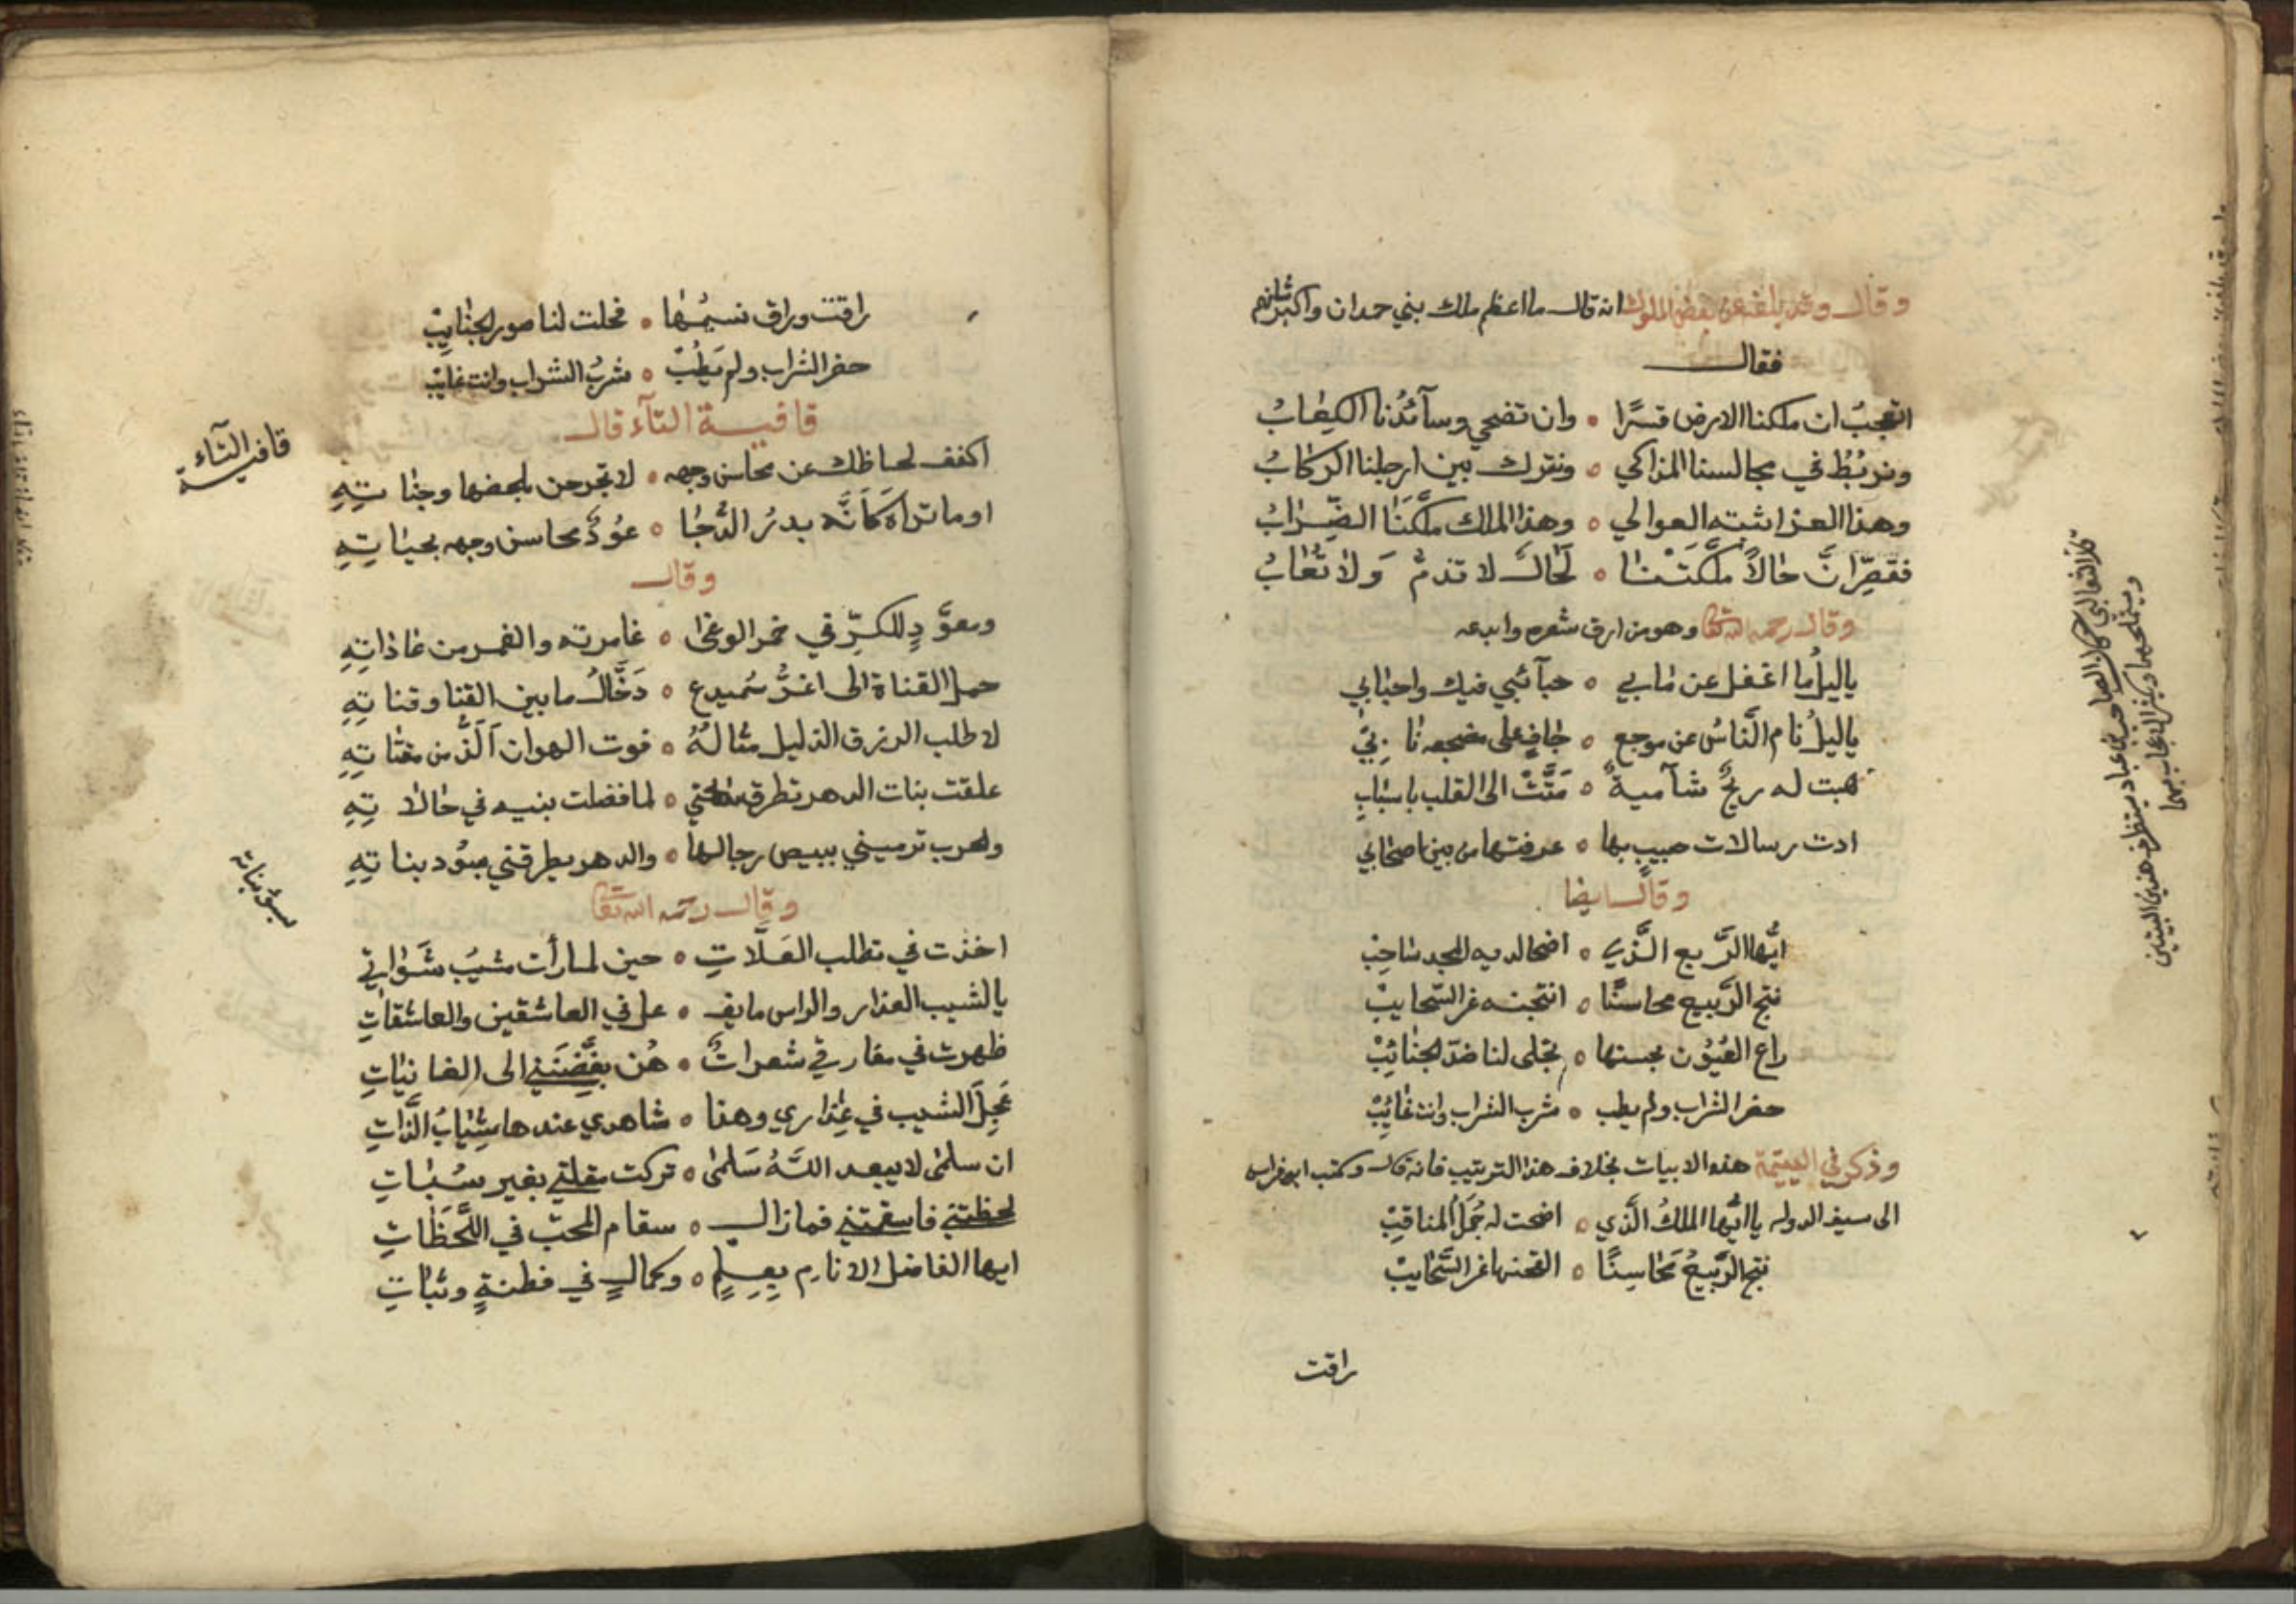 وقال وقد بلغه عن بعض الملوك انه قال ما اعظم ملك بني حمدان واكبر شانهم
فقال
اتعجبُ ان ملكنا الارض قسرًا ۰ وان تضحي وسآئدُنا الكِعٰابُ
ونربُطُ في مجالسنا المذاكي ۰ ونترك بين ارجلنا الركٰابُ
وهذا العز اثبته العوالي ۰ وهذا الملك مكَّنَنَا الضِّرٰابُ
فقصِّر انَّ حٰالاً ملَّكتْنٰا ۰ لَحٰالٌ لا تذمُّ وَلا تُعٰابُ
وقال رحمه الله تعالى وهو من ارق شعره وابدعه
ياليلُ ما اغفل عن مٰا بي ۰ حبآئبي فيك واحبٰابي
ياليلُ نام النَّاسُ عن موجع ۰ جٰافٍ على مضجعه نٰابي
هبت له ريحٌ شآميةٌ ۰ مَتَّتْ الى القلب باسبٰابِ
ادت رسالات حبيبٍ بها ۰ عرفتها من بين اصحٰابي
وقال ايضا
ايُّها الرَّبع الَّذي ۰ اضحا لديه المجد سٰاحِبْ
نتج الرَّبيع محاسنًا ۰ انتجنه غر السَّحايبْ
راع العُيُون بحسنها ۰ بجلى لنا ضدّ الجنٰائِبْ
حضر الشراب ولم يطب ۰ شرب الشراب وانت غٰائِبْ
وذكر في اليتيمة هذه الابيات بخلاف هذا الترتيب فانه قال وكتب ابو فراس
الى سيف الدوله ياايُّها الملكُ الَّذي ۰ اضحت له جُمَلُ المناقِبْ
نتج الرَّبيعُ مَحٰاسِنًا ۰ القحنها غر السَّحٰايبْ
راقت
قال الثعالبي كان الصاحب بن عباد يستظرف هذين البيتين
ويستملحهما ويكثر الاعجاب بهما
راقت وراق نسيمُهٰا ۰ فحلت لنا صور الجنٰايِبْ
حضر الشراب ولم يَطِبْ ۰ شربُ الشراب وانت غايبْ
قافية التآء قال
قافية التآء
اكفف لحاظك عن محاسن وجهه ۰ لا تجرحن بلحضها وجنٰاتِهِ
او ما تراه كَاَنَّه بدرُ الدُّجٰا ۰ عوُذٌ محاسن وجهه بحيٰاتِهِ
وقال
ومعوَّدٍ للكرِّ في خمر الوغىٰ ۰ غامرته والغمر من عٰاذاتِهِ
حمل القناة الى اغرُّ سَميدعٍ ۰ دَخَّالُ ما بين القنا وقناتِهِ
لا طلب الرزق الذليل مثالهُ ۰ فوت الهوان اَلَذُّ من مقتٰاتِهِ
علقت بنات الدهر تطرق سٰاحتي ۰ لما فضلت بنيه في حٰالاتِهِ
والحرب ترميني ببيض رجالها ۰ والدهر يطرقني بسُود بناتِهِ
بسود بناته
وقال رحمه الله تعالى
اخذت في تطلب العَلَّاتِ ۰ حين لما رأت مشيبُ شَوٰاتي
يا لشيب العذار والراس مايفـ ۰ عل في العاشقين والعاشقاتِ
ظهرت في مفارقي شعراتٌ ۰ هُن بغَّضَنَني الى الغانيٰاتِ
عَجِلَ الشيب في عِذاري وهنا ۰ شاهدي عندها بشِيٰابُ لذاتِ
ان سلمىٰ لا يبعد اللهُ سَلمىٰ ۰ تركت مقلتي بغير سُبٰاتِ
لحظتني فاسقمتني فما زال ۰ سقام المحبّ في اللَّحَظٰاتِ
ايها الفاضل الانام بِعِلمٍ ۰ وكمالٍ في فطنةٍ وثبٰاتِ